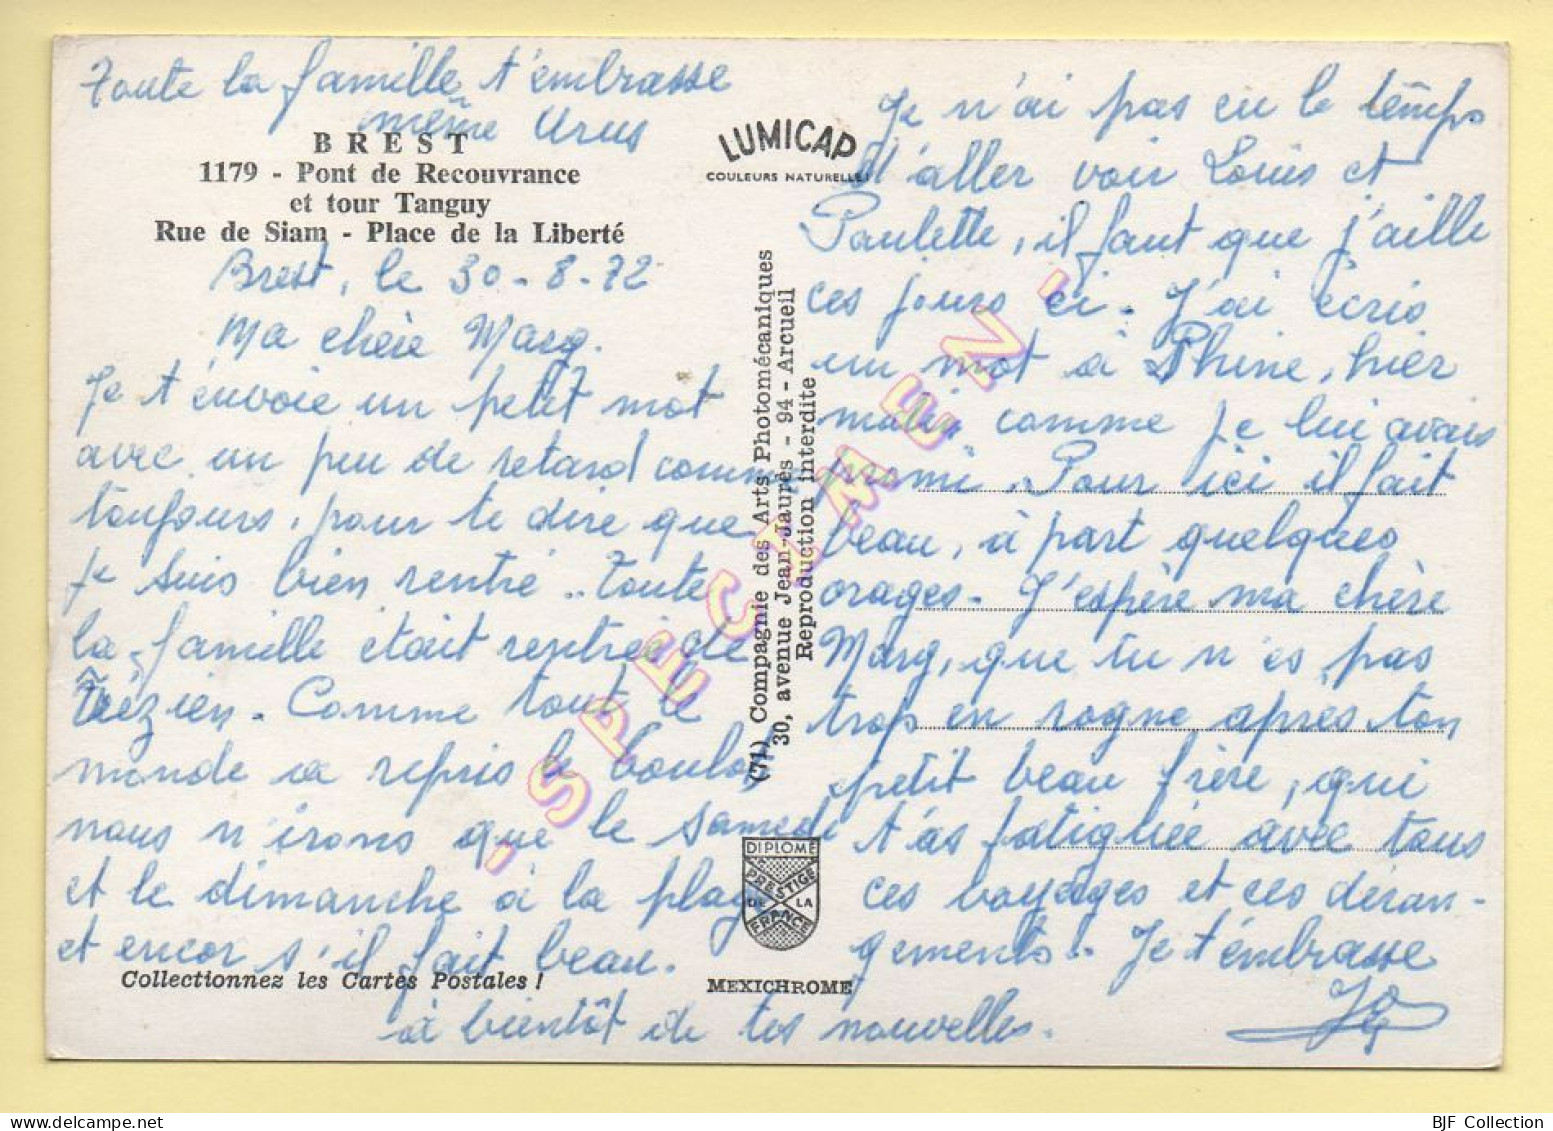 Toute la famille t'embrasse
même Urus
BREST
1179 - Pont de Recouvrance
et tour Tanguy
Rue de Siam - Place de la Liberté
Brest, le 30-8-72
Ma chère Marg.
Je t'envoie un petit mot
avec un peu de retard comme
toujours, pour te dire que
je suis bien rentré.. Toute
la famille était rentrée de
Trézien. Comme tout le
monde a repris le boulot
nous n'irons que le samedi
et le dimanche à la plage
et encor s'il fait beau.
Collectionnez les Cartes Postales !
à bientôt de tes nouvelles.
LUMICAP
COULEURS NATURELLES
(71) Compagnie des Arts Photomécaniques
30, avenue Jean-Jaurès - 94 - Arcueil
Reproduction interdite
DIPLOME
PRESTIGE
DE LA
FRANCE
MEXICHROME
Je n'ai pas eu le temps
d'aller voir Louis et
Paulette, il faut que j'aille
ces jours ci. J'ai écris
un mot à Phine, hier
matin comme je lui avais
promi. Pour ici il fait
beau, à part quelques
orages. J'espère ma chère
Marg, que tu n'es pas
trop en rogne après ton
petit beau frère, qui
t'as fatiguée avec tous
ces voyages et ces déran-
gements. Je t'embrasse
- SPECIMEN -
BJF Collection